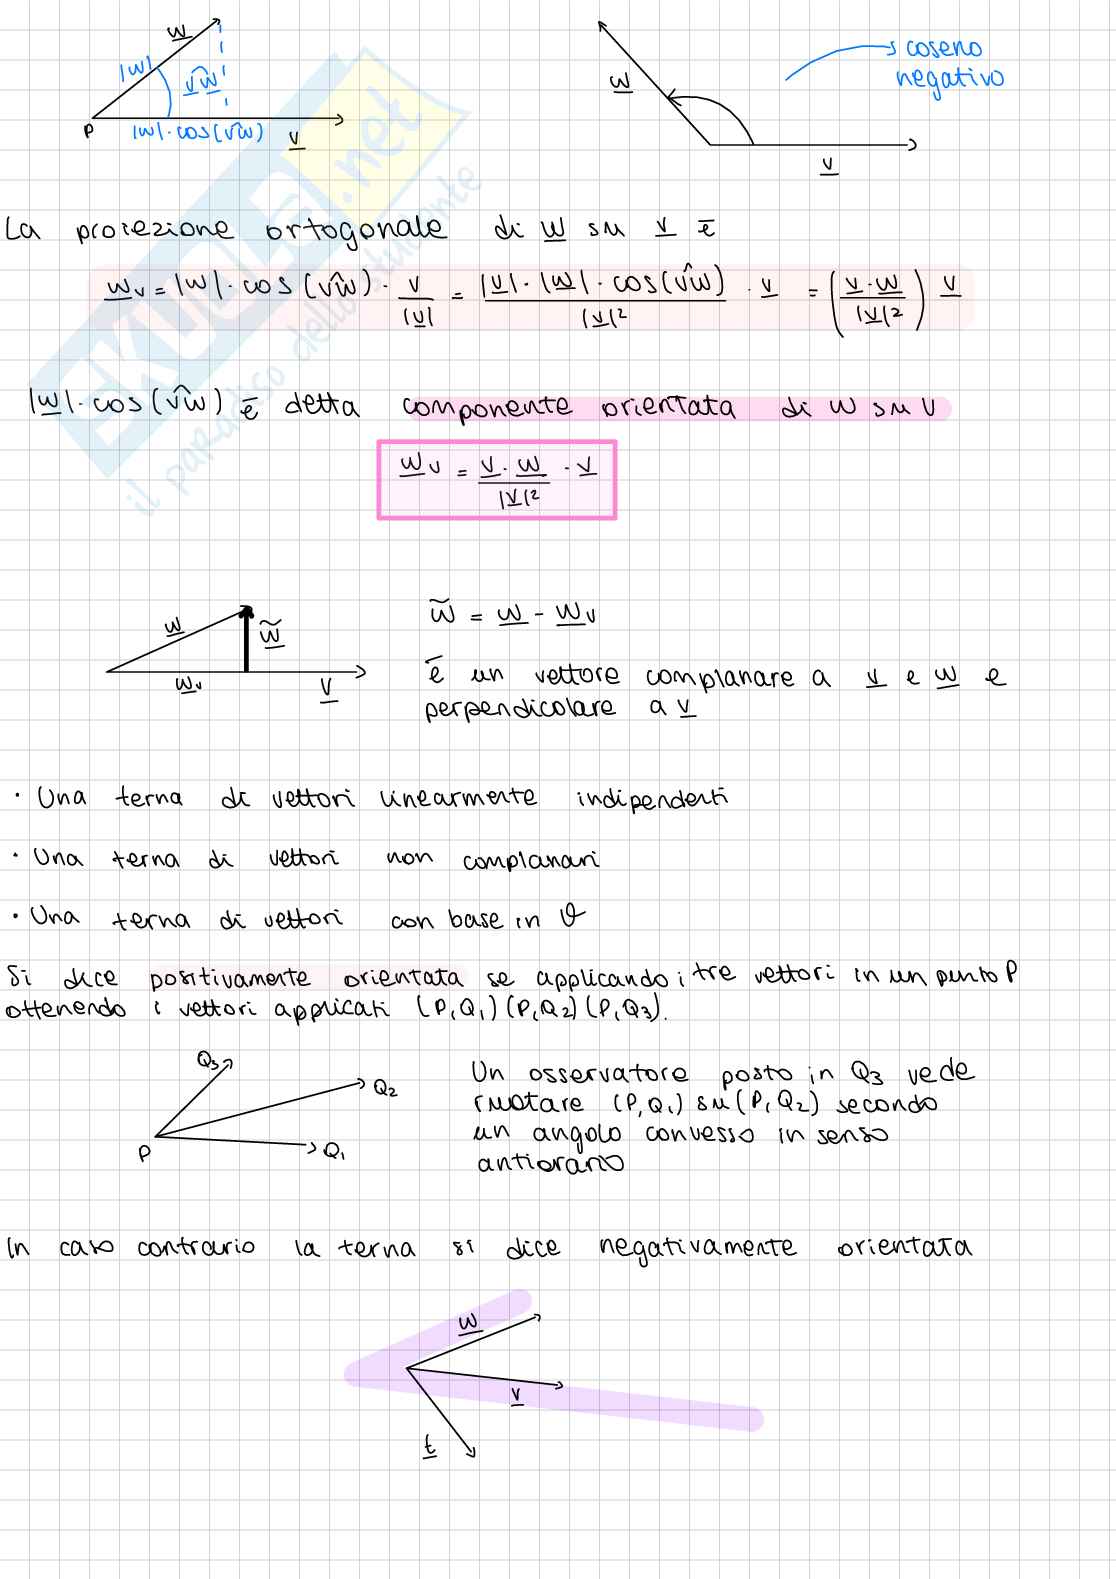 w
|w|
v̂w
P
|w|·cos(v̂w)
v
w
coseno
negativo
v
La proiezione ortogonale di w su v è
w_v = |w|·cos(v̂w)· v/|v| = |v|·|w|·cos(v̂w)/|v|² · v = (v·w/|v|²) v
|w|·cos(v̂w) è detta componente orientata di w su v
w_v = v·w/|v|² · v
w
w̃
w_v
v
w̃ = w - w_v
è un vettore complanare a v e w e
perpendicolare a v
· Una terna di vettori linearmente indipendenti
· Una terna di vettori non complanari
· Una terna di vettori con base in ϑ
Si dice positivamente orientata se applicando i tre vettori in un punto P
ottenendo i vettori applicati (P,Q₁) (P,Q₂) (P,Q₃).
Q₃
Q₂
P
Q₁
Un osservatore posto in Q₃ vede
ruotare (P,Q₁) su (P,Q₂) secondo
un angolo convesso in senso
antiorario
In caso contrario la terna si dice negativamente orientata
w
v
t
SKUOLA.net
il paradiso dello studente